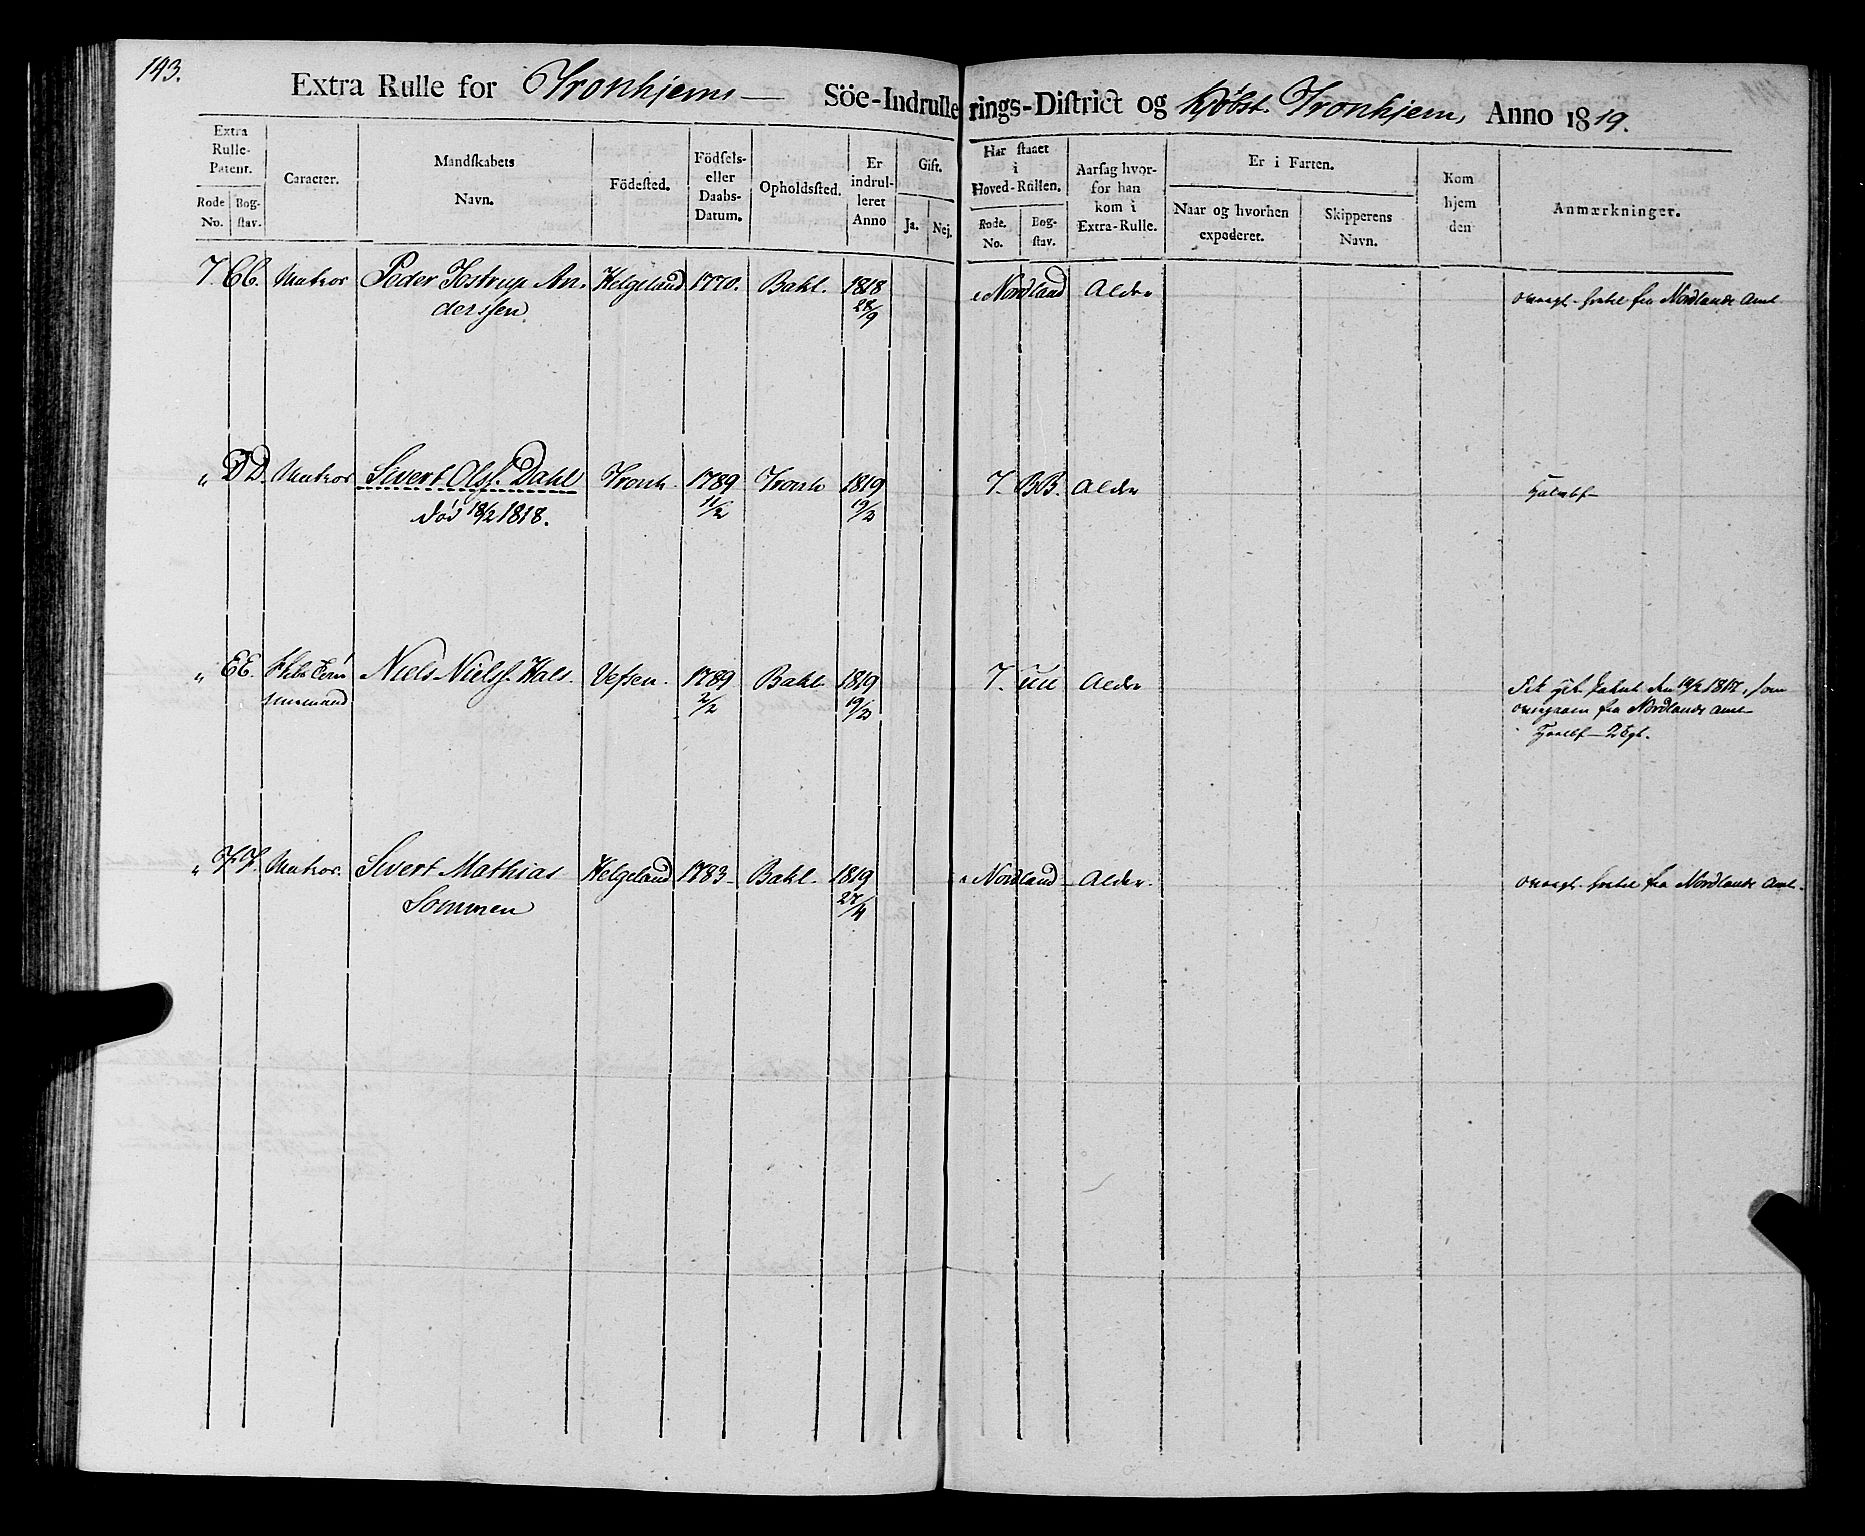 143.
Extra Rulle for Tronhjems Söe-Indrullerings-District og Kjöbst. Tronhjem, Anno 1819.
Extra Rulle-Patent.
Rode No.
Bog-stav.
Caracter.
Mandskabets Navn.
Födested.
Födsels- eller Daabs-Datum.
Opholdsted.
Er indrulleret Anno
Gift.
Ja.
Nej.
Har staaet i Hoved-Rullen.
Rode. No.
Bog-stav.
Aarsag hvorfor han kom i Extra-Rulle.
Er i Farten.
Naar og hvorhen expederet.
Skipperens Navn.
Kom hjem den
Anmærkninger.
7. CC. Matros Peder Jostrup An- Helgeland 1770. Bakl. 1818 Nordland Alder fra Nordlands Amt
derssen 28/9
" DD. Matros Sivert Olss. Dahl Tronh. 1789 Tronh 1819 7. BB. Alder
död 18/2 1818. 11/2 19/3
" EE. Niels Nielss. Hals. Vefsen. 1789 Bakl. 1819 7. UU Alder den 19/2 1817, som
2/2 19/3 fra Nordlands Amt
" FF. Matros. Sivert Mathias Helgeland 1783 Bakl. 1819 " Nordland Alder. fra Nordlands Amt.
Sommen 27/4